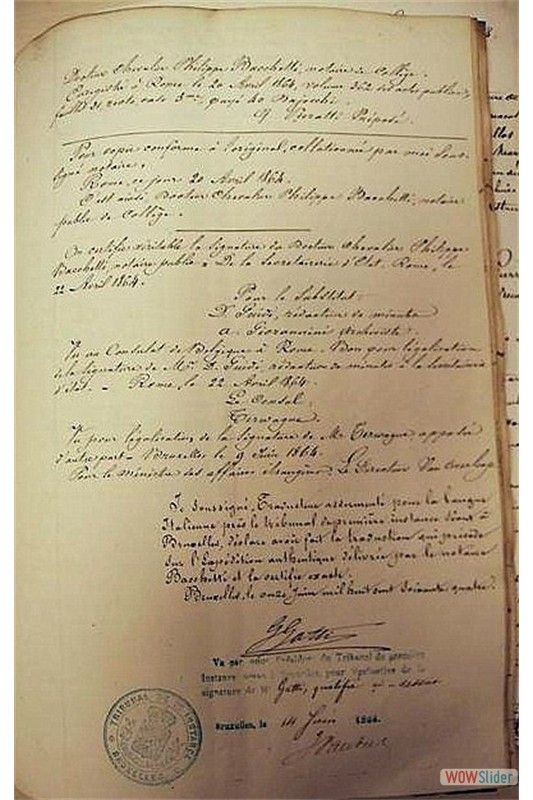 Docteur Chevalier Philippe Bacchetti, notaire de Collège.
Enregistré à Rome le 20 Avril 1864, volume 362 des actes publics,
folio 31, recto, case 3me, payé 40 Bajocchi.
Préposé.
Pour copie conforme à l'original, collationné par moi sous-
signé notaire,
Rome, ce jour 20 Avril 1864.
Docteur Chevalier Philippe Bacchetti, notaire
public de Collège.
On certifie véritable la signature du Docteur Chevalier Philippe
Bacchetti, notaire public. De la Secrétairerie d'Etat, Rome, le
22 Avril 1864.
Pour le Substitut.
D. Guidi, rédacteur de minutes
A. Giovannini Archiviste.
Vu au Consulat de Belgique à Rome. Bon pour légalisation
de la signature de Mr. D. Guidi, rédacteur de minutes à la Secrétairerie
d'état. - Rome, le 22 Avril 1864.
Le Consul,
Terwagne.
Vu pour légalisation de la signature de Mr Terwagne, apposée
d'autre part - Bruxelles le 9 Juin 1864.
Pour le Ministre des affaires étrangères. Le Directeur
Je soussigné, Traducteur assermenté pour la langue
Italienne près le tribunal de première instance séant à
Bruxelles, déclare avoir fait la traduction qui précède
sur l'Expédition authentique délivrée par le notaire
Bacchetti et la certifie exacte.
Bruxelles, le onze Juin mil huit cent soixante quatre.
G Gatti
Vu par nous Président du Tribunal de première
Instance pour légalisation de la
signature de Mr Gatti, qualifié
Bruxelles, le 14 Juin 1864.
TRIBUNAL DE 1RE INSTANCE
BRUXELLES
WOWSlider